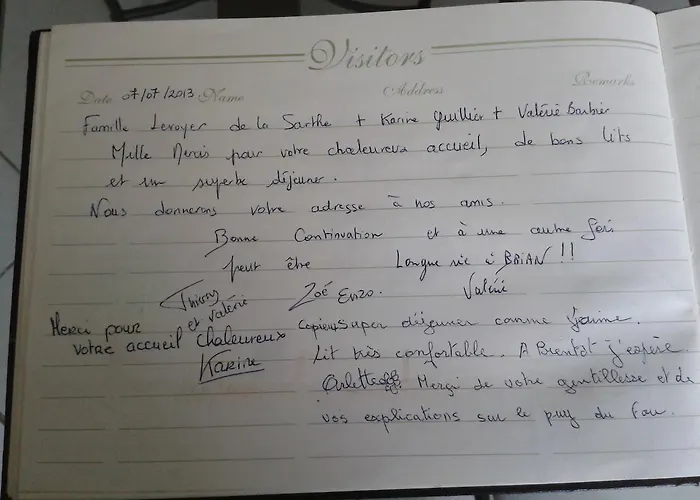 Visitors
Date 07/07/2013 Name Address Remarks
Famille Leroyer de la Sarthe + Karine Guillier + Valérie Barbier
Mille Mercis pour votre chaleureux accueil, de bons lits
et un superbe déjeuner.
Nous donnerons votre adresse à nos amis.
Bonne Continuation et à une autre fois
peut être Longue vie à BRIAN !!
Thierry et Valérie Zoé Enzo. Valérie
Merci pour
votre accueil chaleureux
Karine
Copieux Super déjeuner comme j'aime.
Lit très confortable. A Bientôt j'espère.
Arlette Merçi de votre gentillesse et de
vos explications sur le puy du Fou.